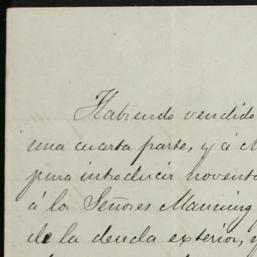 Habiendo vendido
una cuarta parte, y á
para introducir novent
á los Señores Manning
de la deuda exterior,